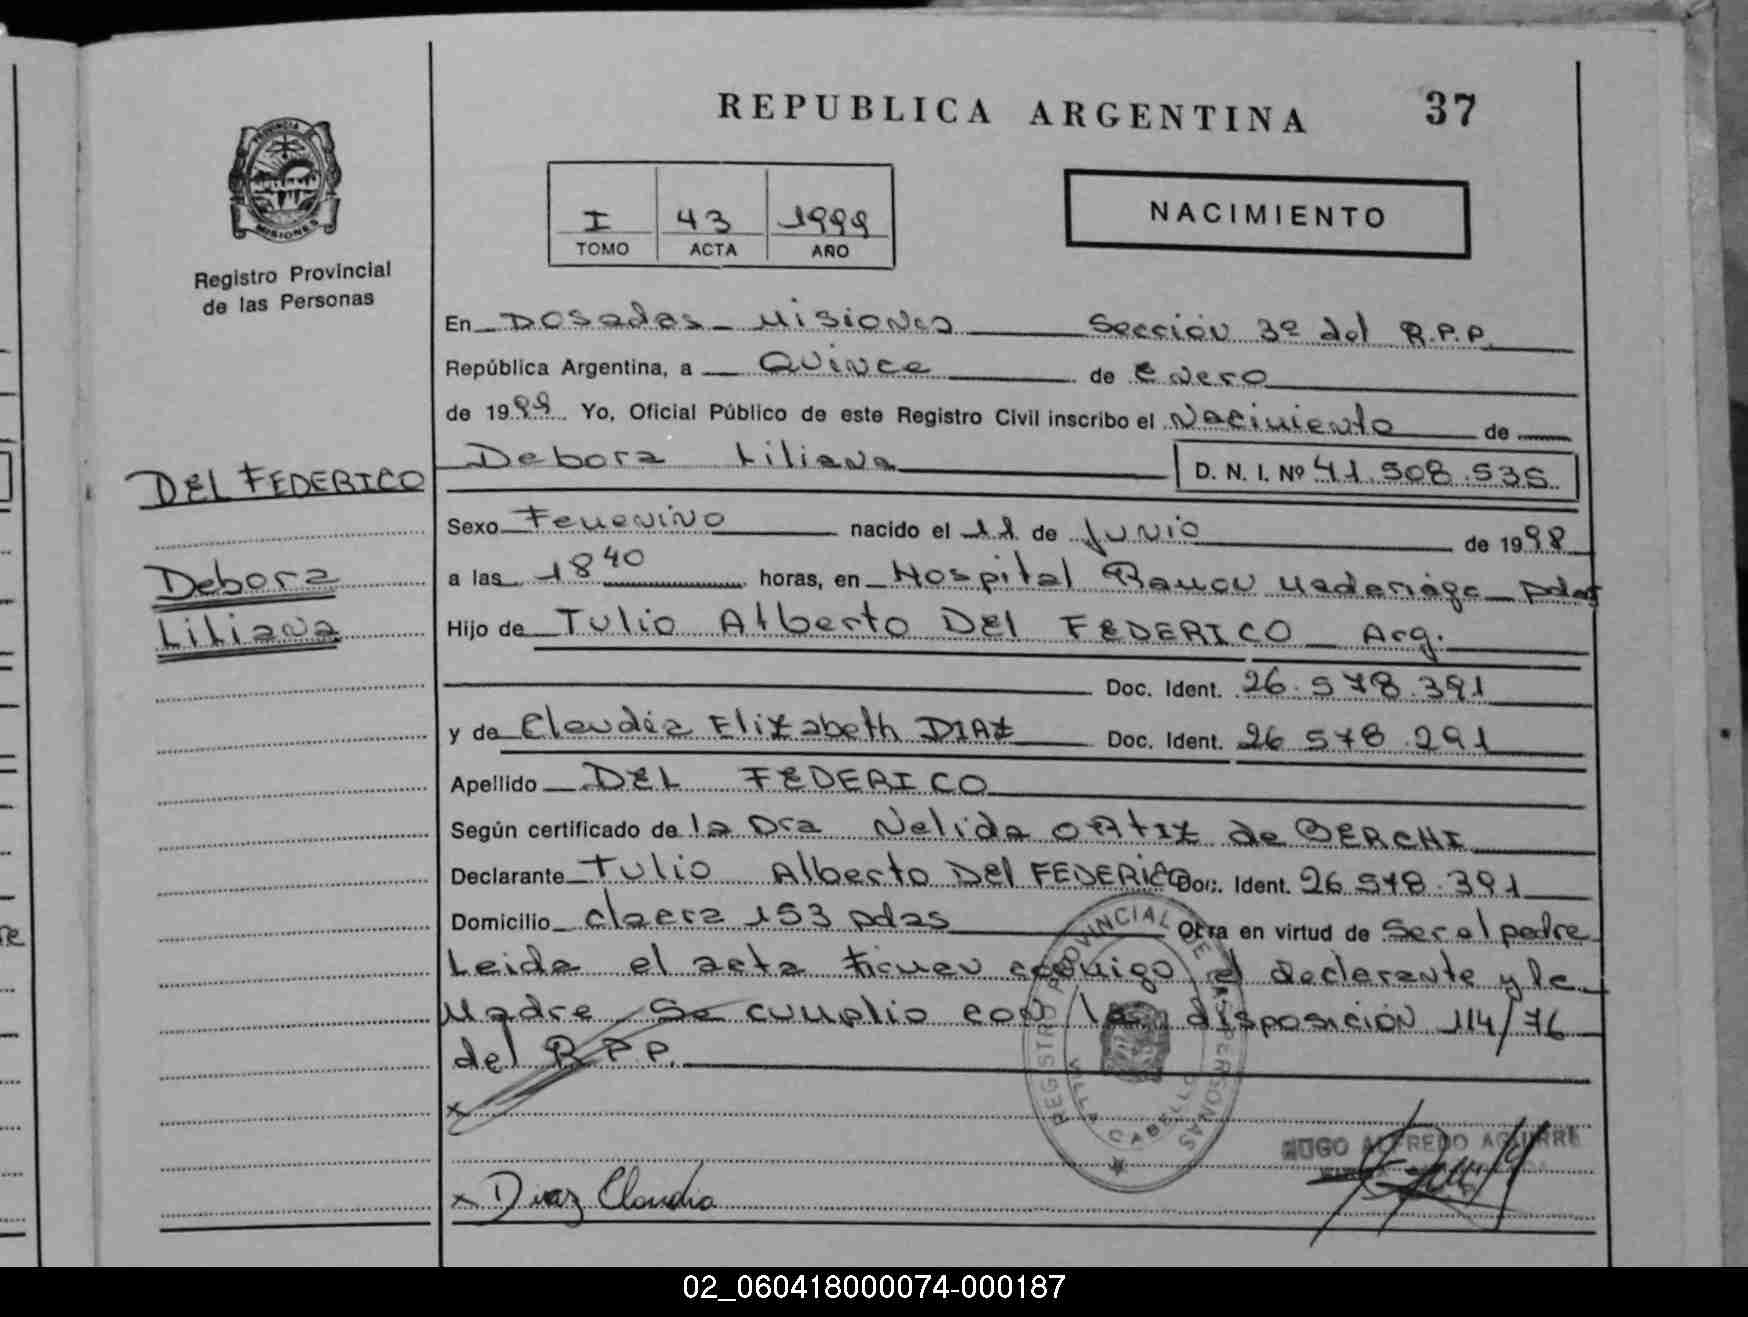 REPUBLICA ARGENTINA 37
PROVINCIA DE
MISIONES
Registro Provincial
de las Personas
I 43 1999
TOMO ACTA AÑO
NACIMIENTO
En Posadas Misiones Sección 3º del R.P.P.
República Argentina, a Quince de Enero
de 1999 Yo, Oficial Público de este Registro Civil inscribo el Nacimiento de
Debora Liliana D. N. I. Nº 41.508.535
DEL FEDERICO
Debora
Liliana
Sexo Femenino nacido el 11 de Junio de 1998
a las 18 40 horas, en Hospital Ramon Madariaga pdas
Hijo de Tulio Alberto Del FEDERICO Arg.
Doc. Ident. 26.578.391
y de Claudia Elizabeth DIAZ Doc. Ident. 26 578.291
Apellido DEL FEDERICO
Según certificado de la Dra Nelida ORtiz de BERCHI
Declarante Tulio Alberto Del FEDERICO Doc. Ident. 26 578.391
Domicilio 153 pdas Otra en virtud de Ser el padre
Leida el acta firman conmigo el declarante y la
Madre Se cumplio con la disposición 114/76
del R.P.P.
REGISTRO PROVINCIAL DE LAS PERSONAS
VILLA CABELLO
x
HUGO ALFREDO AGUIRRE
x Diaz Claudia
02_060418000074-000187